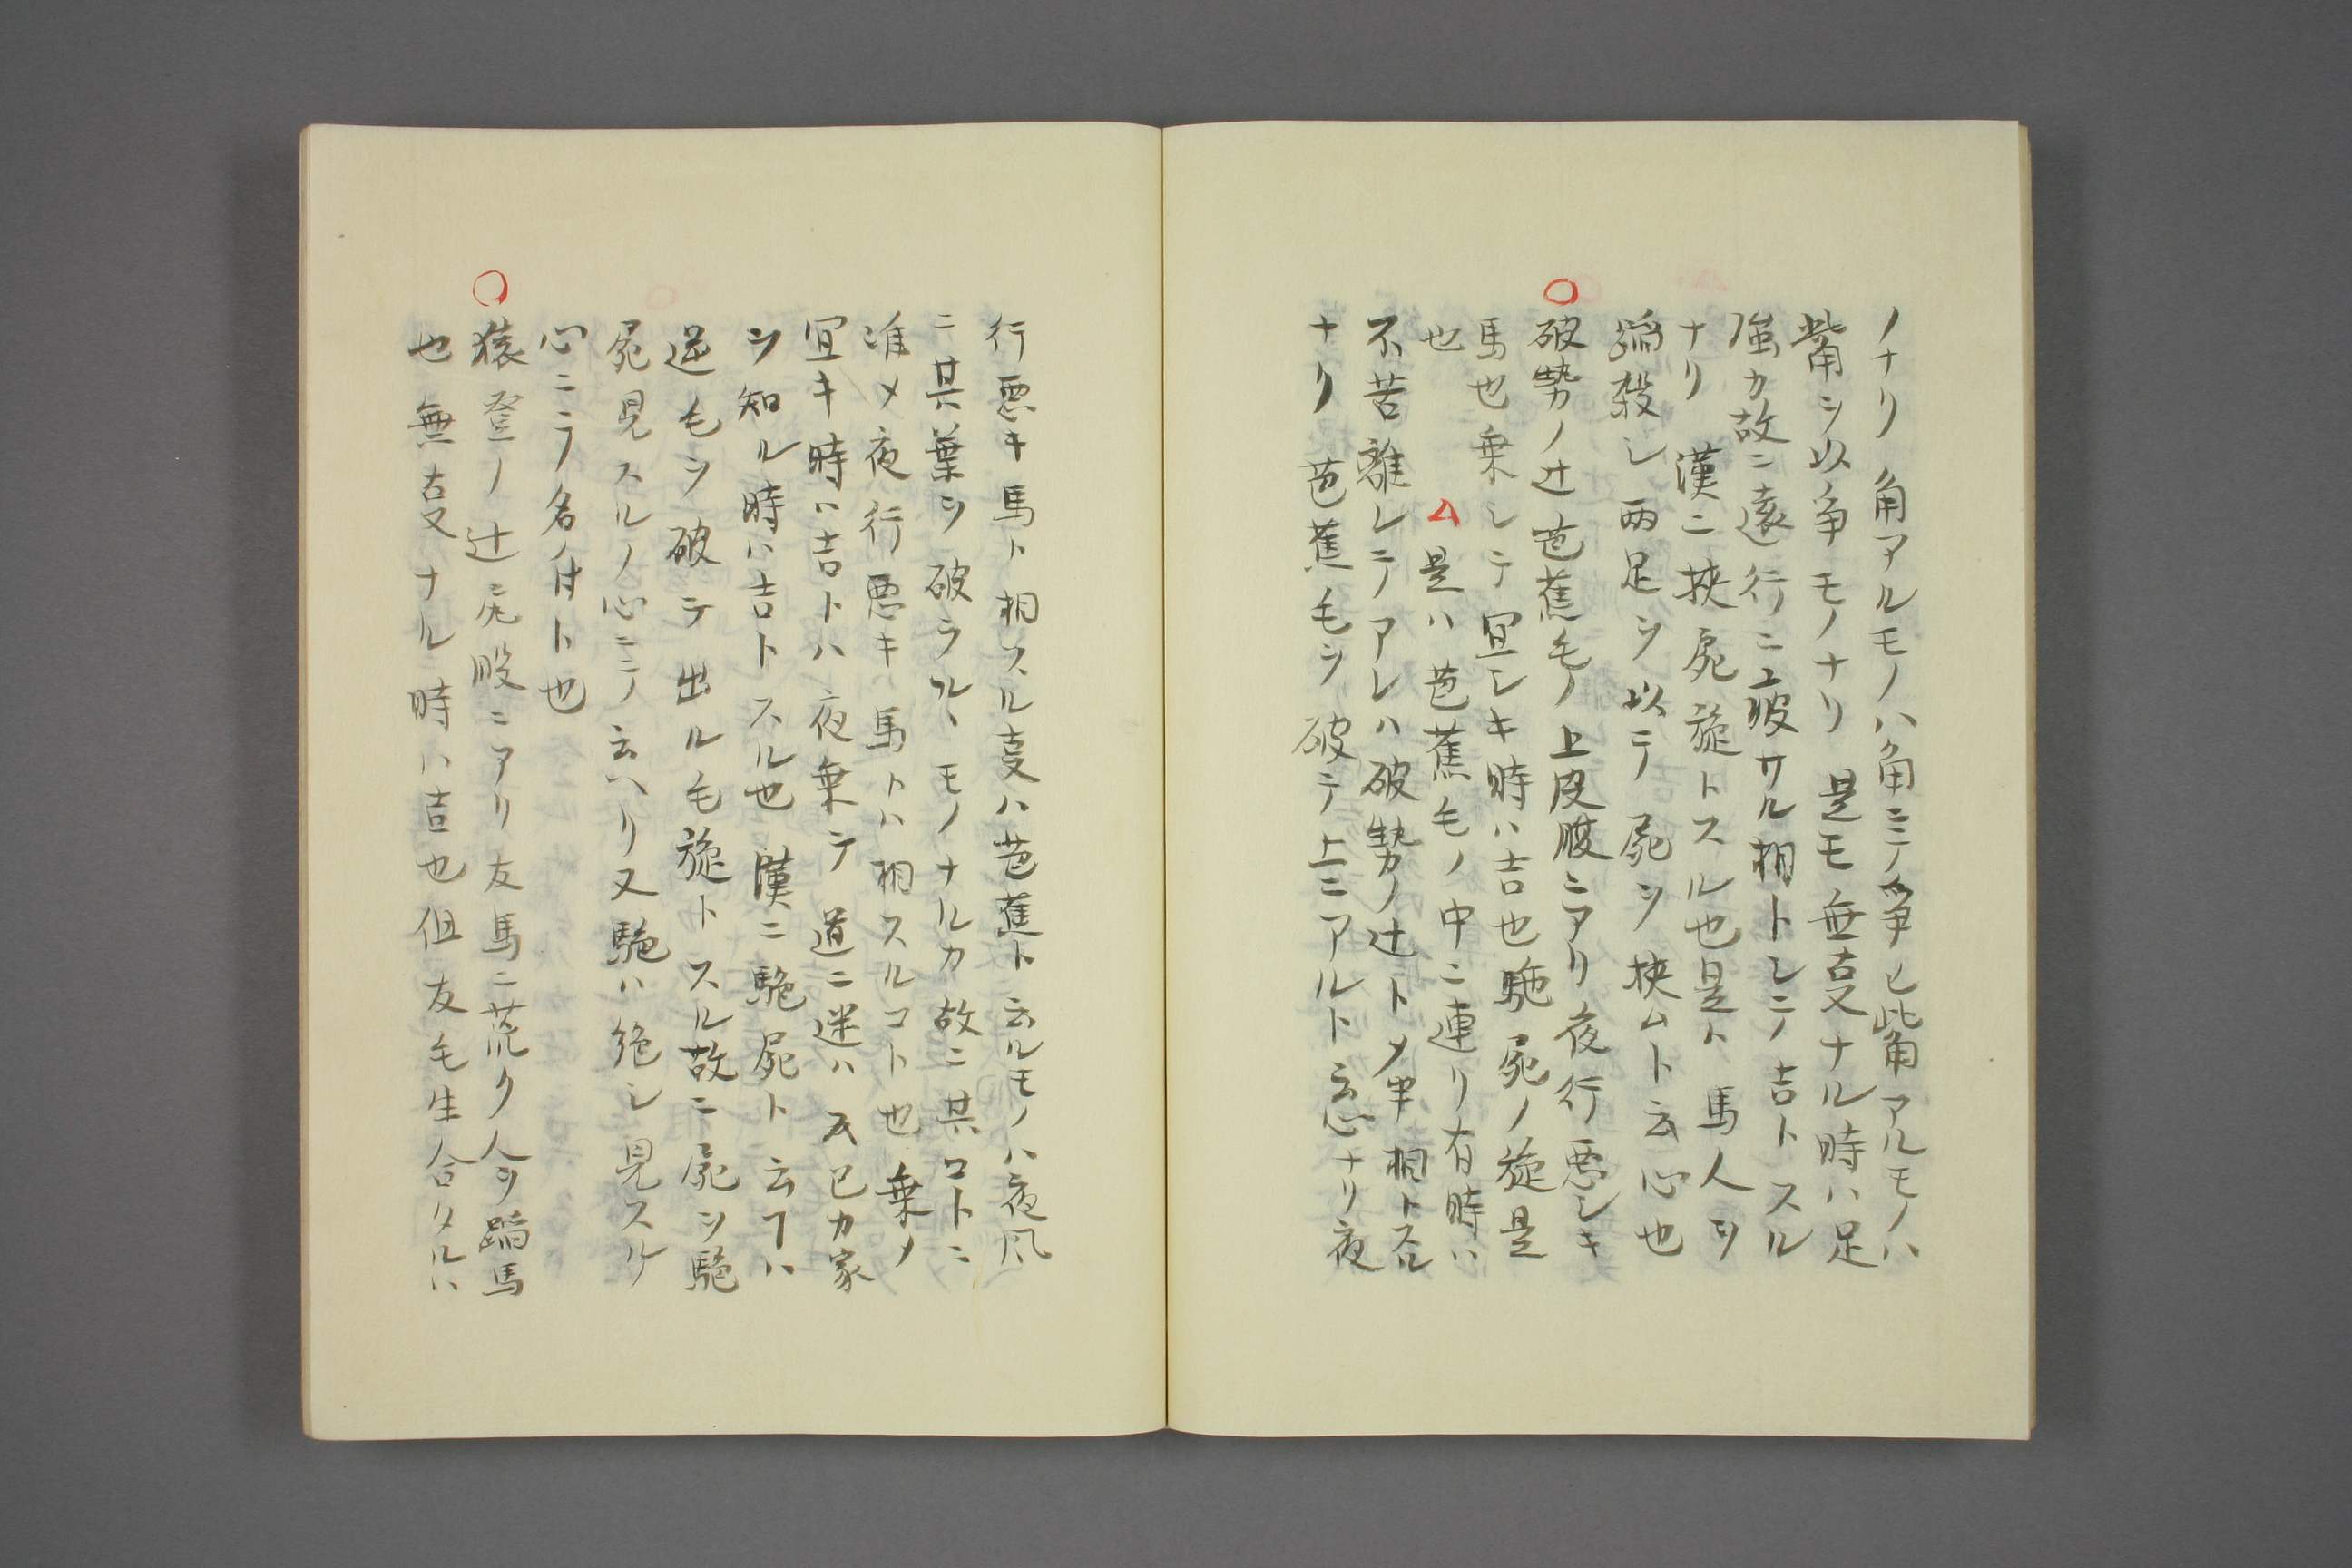 ノナリ 角アルモノハ角ニテ爭ヒ觜角アルモノハ
觜角ヲ以爭モノナリ 是モ無支ナル時ハ足
強カ故ニ遠行ニ疲サル相トシテ吉トスル
ナリ 漢ニ挾屍旋トスル也是ト馬人ヲ
蹄殺シ両足ヲ以テ屍ヲ挾ムト云心也
○破勢ノ辻芭蕉毛ノ上皮腹ニアリ夜行悪シキ
馬也乗シテ冝シキ時ハ吉也駞屍ノ旋是
也 △是ハ芭蕉毛ノ中ニ連リ有時ハ
不苦離レテアレハ破勢ノ辻トメ相トスル
ナリ芭蕉毛ヲ破テ上ニアルト云心ナリ夜
行悪キ馬ト相スル支ハ芭蕉ト云ルモノハ夜風
ニ其葉ヲ破ラルヽモノナルカ故ニ其コトニ
准メ夜行悪キ馬トハ相スルコト也乗ノ
冝キ時ハ吉トハ夜乗テ道ニ迷ハス己カ家
ヲ知ル時ハ吉トスル也 漢ニ駞屍ト云フハ
逆毛ヲ破テ出ル毛旋トスル故ニ屍ヲ駞
屍見スルノ心ニテ云ヘリ又駞ハ絶シ見スル
心ニテ名付ト也
○猿登ノ辻尻股ニアリ友馬ニ荒ク人ヲ蹈馬
也無支ナル時ハ吉也但友毛生合タルハ